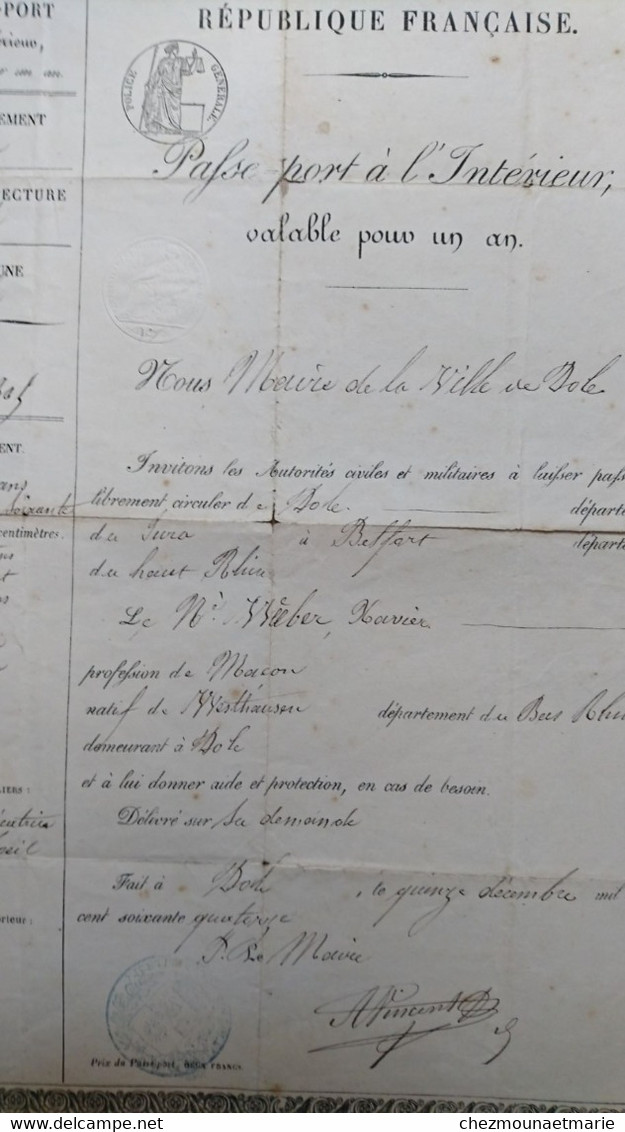 PORT
RÉPUBLIQUE FRANÇAISE.
POLICE GÉNÉRALE
Passe-port à l'Intérieur,
valable pour un an.
Nous Maire de la Ville de Dole
Invitons les Autorités civiles et militaires à laisser pass
librement circuler de Dole départe
du Jura à Belfort départe
du haut Rhin
Le Né Weber, Xavier
profession de Maçon
natif de Westhausen département du Bas Rhin
demeurant à Dole
et à lui donner aide et protection, en cas de besoin.
Délivré sur sa demande
Fait à Dole, le quinze décembre mil
cent soixante quatorze
P. Le Maire
AVincent
Prix du Passeport, DEUX FRANCS.
EMENT
ECTURE
UNE
ENT.
ans
soixante
centimètres.
LIERS :
érieur :
chezmounaetmarie.delcampe.net